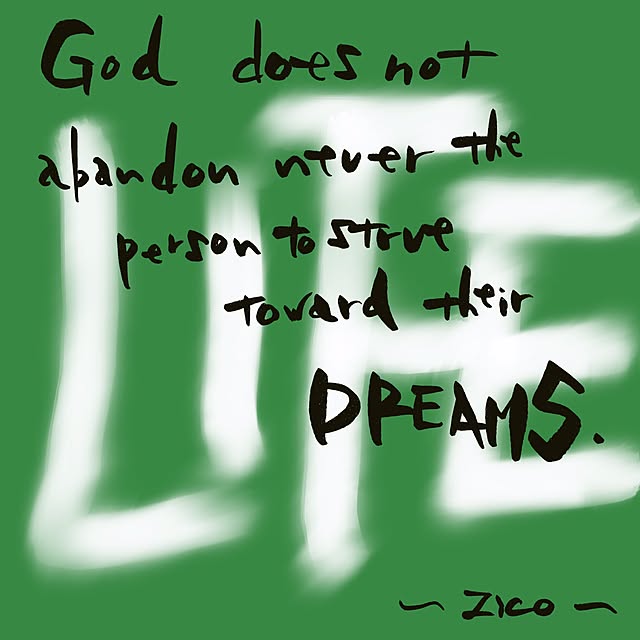 God does not
abandon never the
person to strve
toward their
DREAMS.
LIFE
~ Zico ~